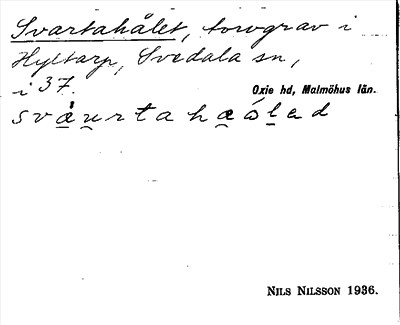 Svartahålet, torvgrav i
Hyltarp, Svedala sn,
i 37.
Oxie hd, Malmöhus län.
svæ̀u̯rtahæ̯ól̯ed
NILS NILSSON 1936.